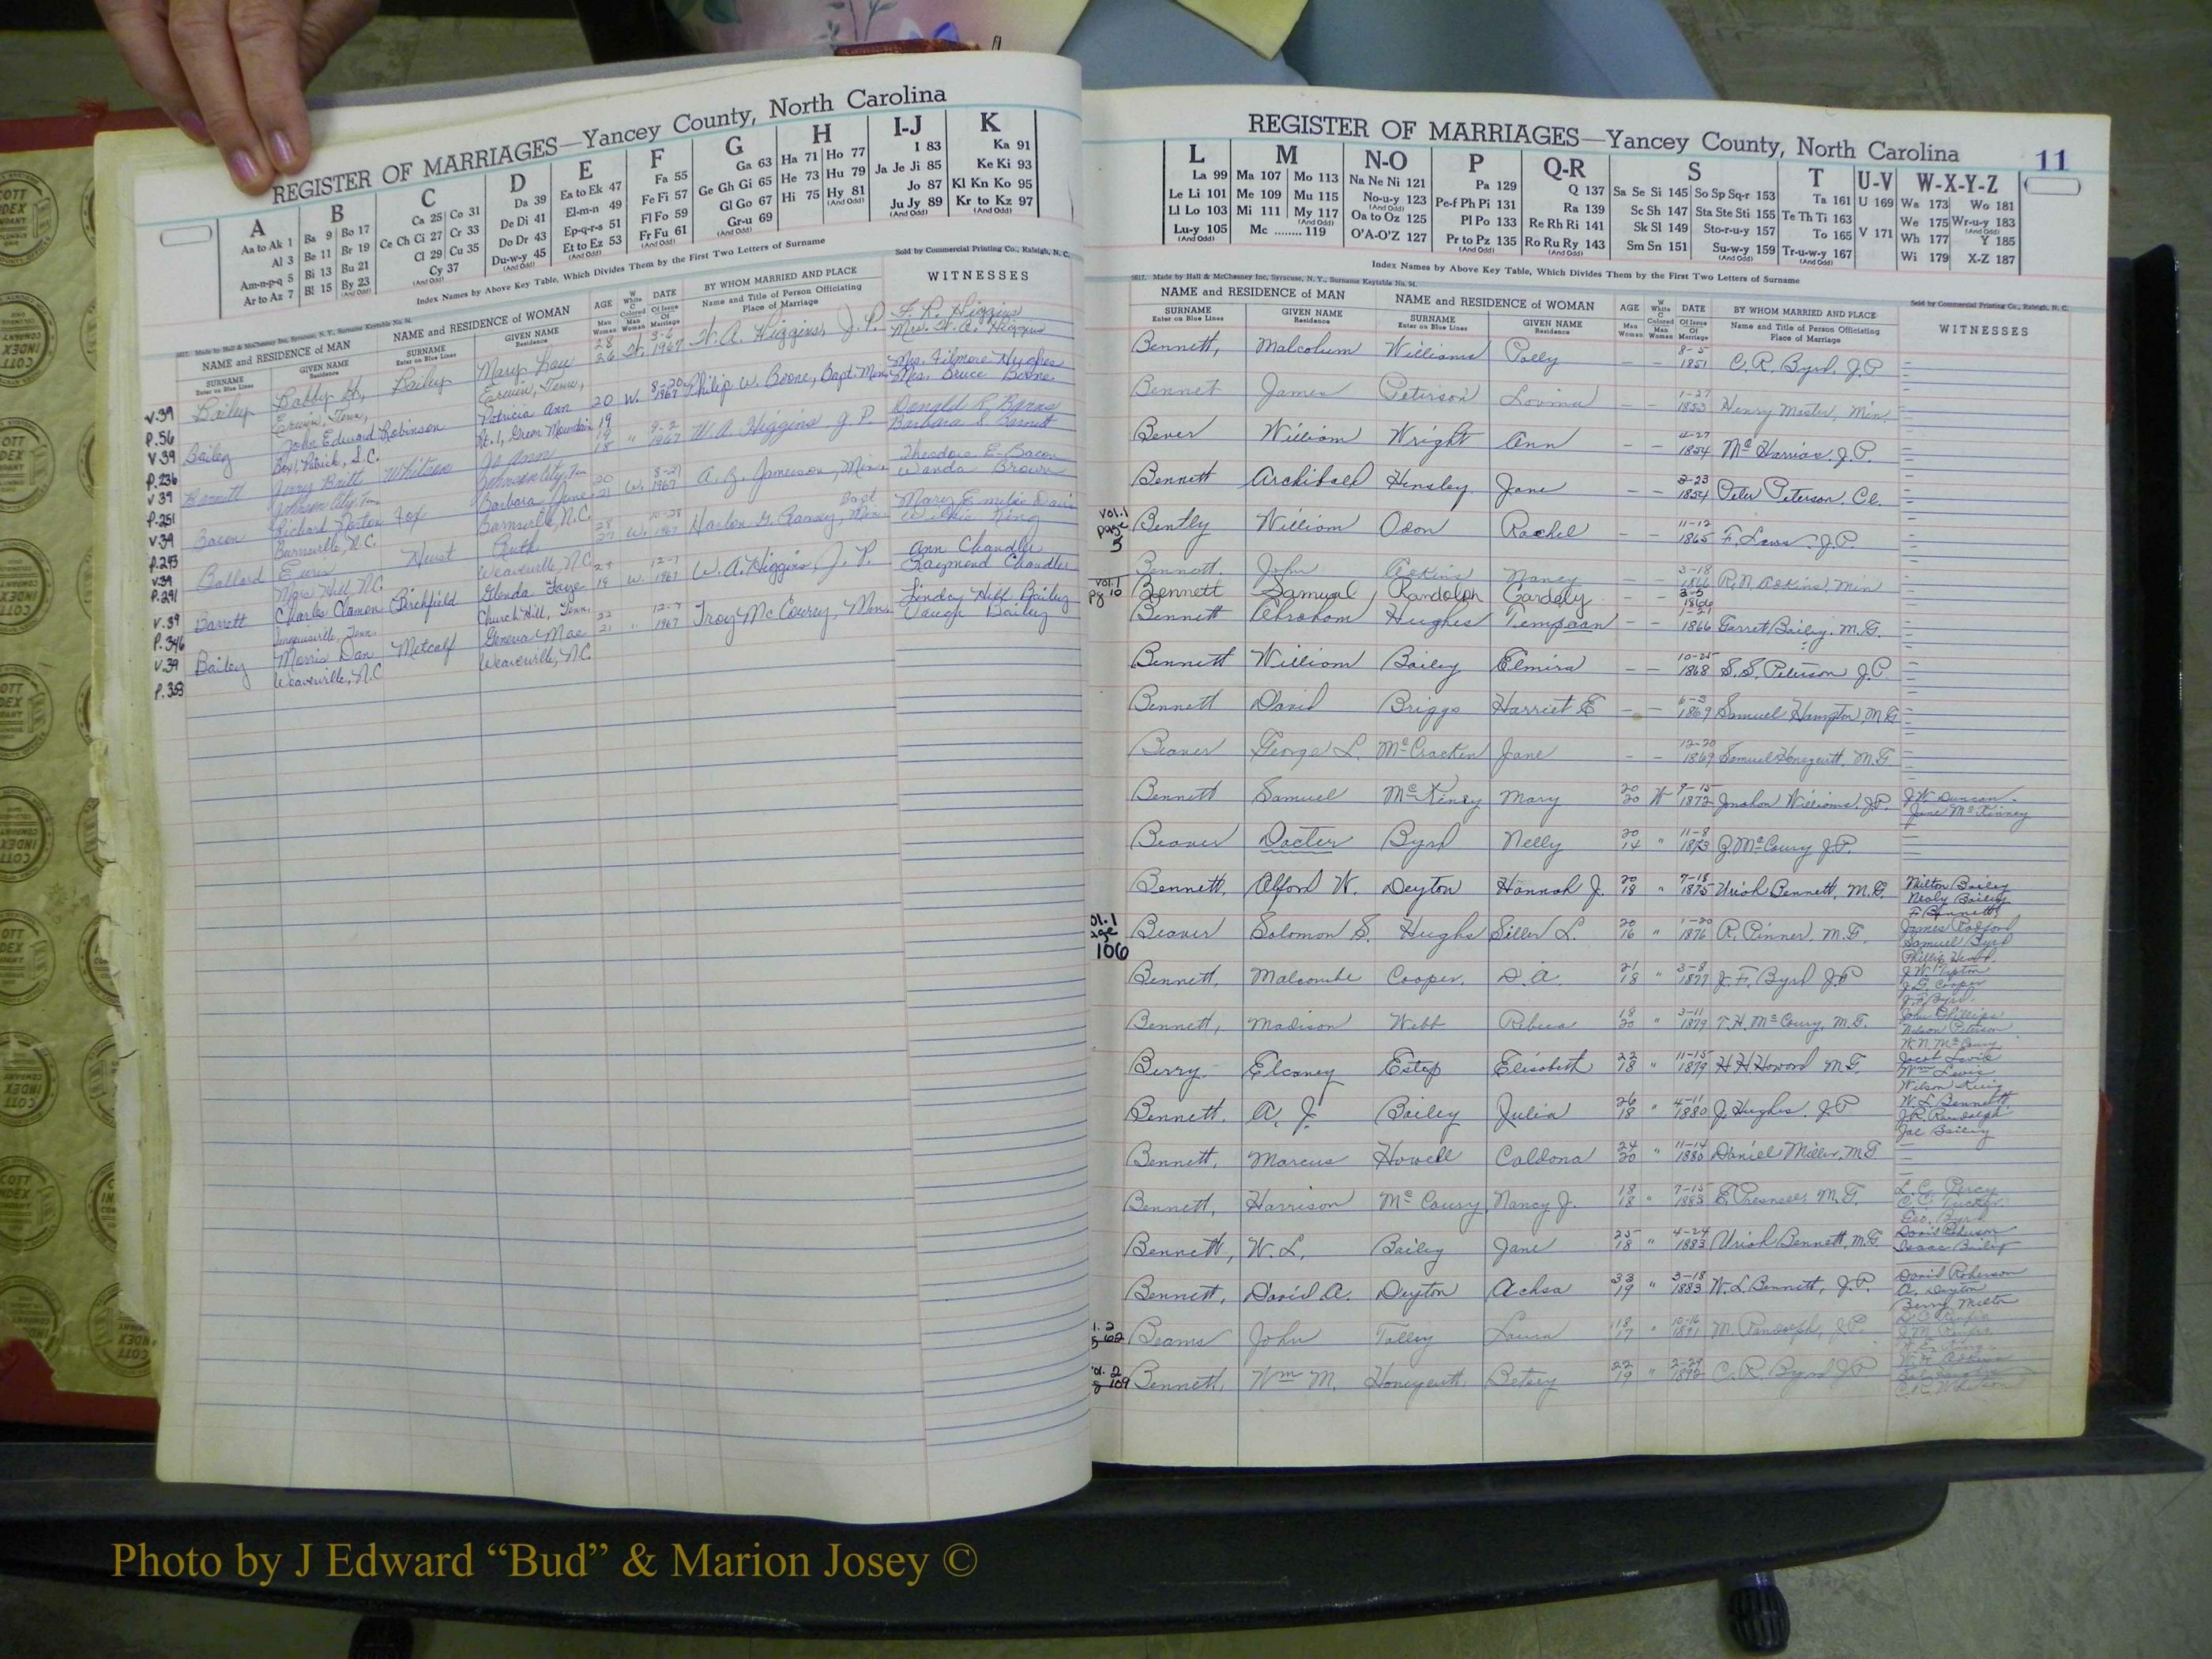 REGISTER OF MARRIAGES—Yancey County, North Carolina
A B C D E F G H I-J K
Aa to Ak 1 Ba 9 Bo 17 Ca 25 Co 31 Da 39 Ea to Ek 47 Fa 55 Ga 63 Ha 71 Ho 77 I 83 Ka 91
Al 3 Be 11 Br 19 Ce Ch Ci 27 Cr 33 De Di 41 El-m-n 49 Fe Fi 57 Ge Gh Gi 65 He 73 Hu 79 Ja Je Ji 85 Ke Ki 93
Am-n-p-q 5 Bi 13 Bu 21 Cl 29 Cu 35 Do Dr 43 Ep-q-r-s 51 Fl Fo 59 Gl Go 67 Hi 75 Hy 81 Jo 87 Kl Kn Ko 95
Ar to Az 7 Bl 15 By 23 Cy 37 Du-w-y 45 Et to Ez 53 Fr Fu 61 Gr-u 69 Ju Jy 89 Kr to Kz 97
Index Names by Above Key Table, Which Divides Them by the First Two Letters of Surname
Sold by Commercial Printing Co., Raleigh, N. C.
NAME and RESIDENCE OF MAN NAME and RESIDENCE OF WOMAN AGE DATE BY WHOM MARRIED AND PLACE WITNESSES
SURNAME GIVEN NAME SURNAME GIVEN NAME Name and Title of Person Officiating
Enter on Blue Lines Residence Enter on Blue Lines Residence Place of Marriage
V.39 Bailey Bobby Bailey Mary Lou 28 3-6 W. A. Higgins, J. P. F. R. Higgins
P.56 Erwin, Tenn, Erwin, Tenn, 26 W. 1967 Mrs. W. A. Higgins
V 39 Bailey John Edward Robinson Patricia Ann 20 W. 8-20 1967 Philip W. Boone, Bapt. Min. Mrs. Filmore Hughes
P.236 Box 1, Patrick, S.C. Rt. 1, Green Mountain 19 Mrs. Bruce Boone
V 39 Barnett Jerry Britt Whitson Jo Ann 19 " 9-2 W. A. Higgins J. P. Donald R. Byrns
P.251 Johnson City, Tn. Johnson City, Tn. 18 1967 Barbara S. Barnett
V.39 Bacon Richard Norton Fox Barbara June 20 W. 8-27 A. Z. Jameson, Min. Theodore E. Bacon
P.293 Burnsville, N.C. Burnsville, N.C. 21 1967 Wanda Brown
V.39 Ballard Ruth 28 W. Harlon Min. Mary Emilie Davis
P.291 Mars Hill, N.C. Weaverville, N.C. 27 1967 King
V.39 Barrett Charles Clamon Birchfield Glenda Faye 23 W. 12-1 W. A. Higgins, J. P. Ann Chandler
P.346 Church Hill, Tenn. 19 1967 Raymond Chandler
V.39 Bailey Morris Dan Metcalf Geneva Mae 22 " 12-7 Troy McCourry, Min. Linda Bailey
P.353 Weaverville, N.C. Weaverville, N.C. 21 1967 Bailey
REGISTER OF MARRIAGES—Yancey County, North Carolina 11
L M N-O P Q-R S T U-V W-X-Y-Z
La 99 Ma 107 Mo 113 Na Ne Ni 121 Pa 129 Q 137 Sa Se Si 145 So Sp Sq-r 153 Ta 161 U 169 Wa 173 Wo 181
Le Li 101 Me 109 Mu 115 No-u-y 123 Pe-f Ph Pi 131 Ra 139 Sc Sh 147 Sta Ste Sti 155 Te Th Ti 163 We 175 Wr-u-y 183
Ll Lo 103 Mi 111 My 117 Oa to Oz 125 Pl Po 133 Re Rh Ri 141 Sk Sl 149 Sto-r-u-y 157 To 165 V 171 Wh 177 Y 185
Lu-y 105 Mc ........ 119 O'A-O'Z 127 Pr to Pz 135 Ro Ru Ry 143 Sm Sn 151 Su-w-y 159 Tr-u-w-y 167 Wi 179 X-Z 187
Index Names by Above Key Table, Which Divides Them by the First Two Letters of Surname
5617. Made by Hall & McChesney Inc, Syracuse, N. Y., Surname Keytable No. 94. Sold by Commercial Printing Co., Raleigh, N. C.
NAME and RESIDENCE OF MAN NAME and RESIDENCE OF WOMAN AGE DATE BY WHOM MARRIED AND PLACE WITNESSES
SURNAME GIVEN NAME SURNAME GIVEN NAME Man White Of Issue Name and Title of Person Officiating
Enter on Blue Lines Residence Enter on Blue Lines Residence Woman Colored Of Marriage Place of Marriage
Bennett, Malcolum Williams Polly – 8-5 1851 C. R. Byrd, J.P
Bennet James Peterson Lovina – – 1-27 1853 Henry Master, Min.
Bever William Wright Ann – – 4-27 1854 J.P.
Bennett Archibald Hensley Jane – – 3-23 1854 Peter Peterson, Cl.
Vol. 1 page 5 Bently William Odon Rachel – – 11-12 1865 F. Laws, J.P.
Bennett. John Adkins Nancy – – 3-18 1866 R.N. Adkins, Min
Vol. 1 pg 10 Bennett Samual Randolph Cardely – – 3-5 1866
Bennett Abraham Hughes Tempaan – – 1-21 1866 Garrett Bailey, M.G.
Bennett William Bailey Elmira – – 10-25 1868 S. S. Peterson J.P.
Bennett David Briggs Harriet E – – 6-3 1869 Samuel Hampton, M.G.
Beaver George L. McCracken Jane – – 12-20 1869 Samuel Honeycutt, M.G.
Bennett Samuel McKiney Mary 20 20 W 9-15 1872 Jonahon Williams, J.P. J. W. Duncan
Jane McKinney
Beaver Docter Byrd Nelly 20 14 " 11-8 1873 J. McCoury J.P.
Bennett, Alford W. Deyton Hannah J. 20 18 " 7-18 1875 Uriah Bennett, M.G. Milton Bailey
Nealy Bailey
F Bennett
ol. 1 age 106 Beaver Solomon S. Hughs Siller L. 20 16 " 1-20 1876 R. Pinner, M.G. James
Samuel Byrd
Phillip
Bennett, Malcombe Cooper, D. A. 21 18 " 3-8 1877 J. F. Byrd J.P J. W. Tipton
J. D. Cooper
J. F. Byrd.
Bennett, Madison Webb Ribeca 18 20 " 3-11 1879 T. H. McCoury, M.G. John Phillips
Nelson Peterson
W. N. McCoury
Berry Elcaney Estep Elisabeth 22 18 " 11-15 1879 H. H. Howard M.G. Jacob Lewis
Wm Lewis
Wilson King
Bennett. A. J. Bailey Julia 26 18 " 4-11 1880 J. Hughes. J.P. W. L. Bennett
J. R. Randolph
Joe Bailey
Bennett, Marcus Howell Caldona 24 20 " 11-14 1880 Daniel Miller, M.G
Bennett, Harrison McCoury Nancy J. 18 18 " 7-15 1883 E. Presnell, M.G. L. C. Percy
C. C. Tucker
Geo. Byrd
Bennett, W. L. Bailey Jane 25 18 " 4-24 1883 Uriah Bennett, M.G.
Isaac Bailey
Bennett, David A. Deyton Achsa 33 19 " 3-18 1883 W. L. Bennett, J.P. David Roberson
A. Deyton
Berry Milton
Beams John Talley Laura 18 17 " 10-16 1891 M. Randolph, J.P.
109 Bennett, Wm M. Honeycutt Betsey 22 19 " 2-29 1892 C. R. Byrd J.P
Photo by J Edward “Bud” & Marion Josey ©